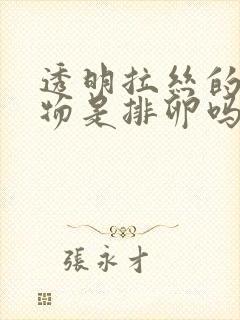 透明拉丝的
物是排卵吗
張永才